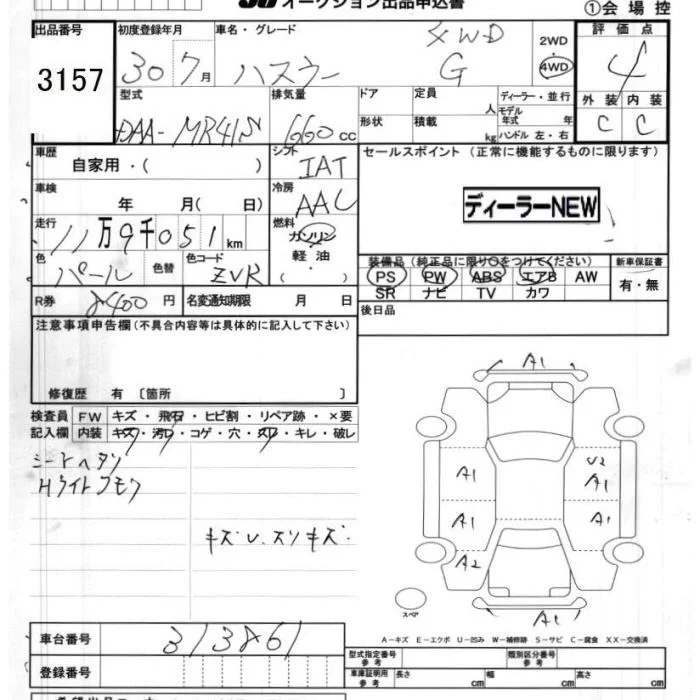 オークション出品申込書
①会場控
出品番号
3157
初度登録年月
30 7月
車名・グレード
ハスラー
4WD
G
2WD
4WD
評価点
4
外装 内装
C C
型式
DAA-MR41S
排気量
660cc
ドア
形状
定員 人
積載 kg
ディーラー・並行
モデル
年式 年
ハンドル 左・右
車歴
自家用・( )
シフト
IAT
セールスポイント (正常に機能するものに限ります)
ディーラーNEW
車検
年 月( 日)
冷房
AAC
走行
11万9千051km
燃料
ガソリン
軽油
( ・ )
色
パール
色替
色コード
ZVR
装備品 (純正品に限り○をつけてください)
PS PW ABS エアB AW
SR ナビ TV カワ
新車保証書
有・無
R券
8400円
名変通知期限 月 日
後日品
注意事項申告欄(不具合内容等は具体的に記入して下さい)
修復歴 有 〔箇所 〕
検査員
記入欄
FW キズ・飛石・ヒビ割・リペア跡・×要
内装 キズ・汚レ・コゲ・穴・スレ・キレ・破レ
シートヘタリ
Hライトクモリ
キズU.スリキズ.
A1
A1
U2
A1
A1
A1
A2
A1
スペア
A−キズ E−エクボ U−凹み W−補修跡 S−サビ C−腐食 XX−交換済
車台番号
313861
登録番号
型式指定番号
参考
類別区分番号
参考
車庫証明用
参考
長さ cm
幅 cm
高さ cm